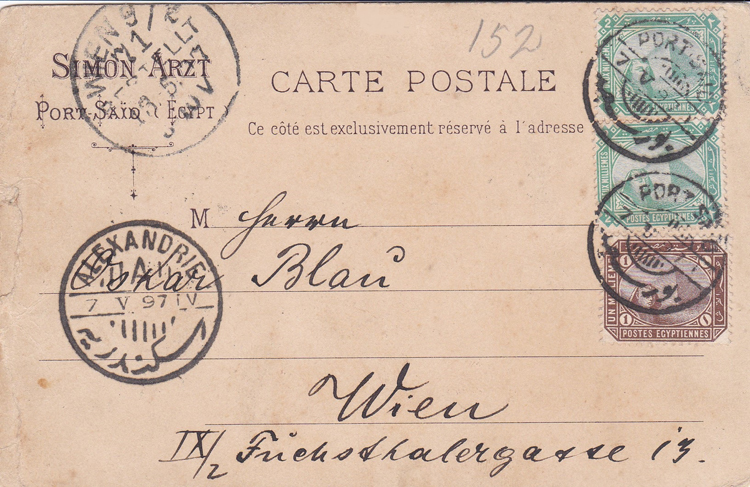 152
SIMON ARZT
PORT-SAÏD (EGYPT
CARTE POSTALE
Ce côté est exclusivement réservé à l'adresse
WIEN 9/
BESTELLT
PORT-SAID
V
بور
POSTES EGYPTIENNES
PORT-SAID
بور
POSTES EGYPTIENNES
UN MILLIEME
1 1
POSTES EGYPTIENNES
M Herrn
Oskar Blau
ALEXANDRIE
7 V 97 IV
اسكندريه
Wien
IX/2 Fuchsthalergasse 13.